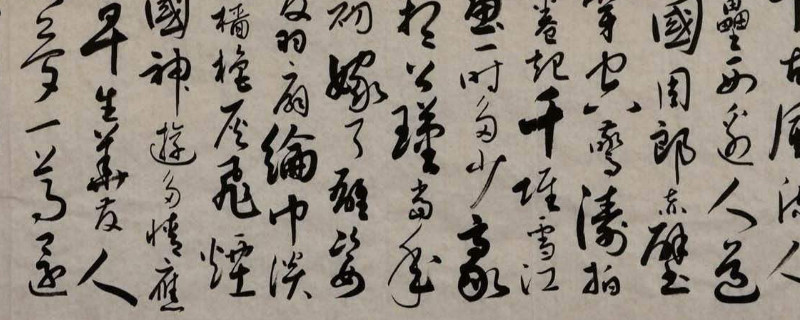 古風流人
壘西邊人道
國周郎赤壁
穿空驚濤拍
卷起千堆雪江
畫一時多少豪
想公瑾當年
初嫁了雄姿
發羽扇綸巾談
檣櫓灰飛煙
國神遊多情應
早生華發人
如夢一尊還